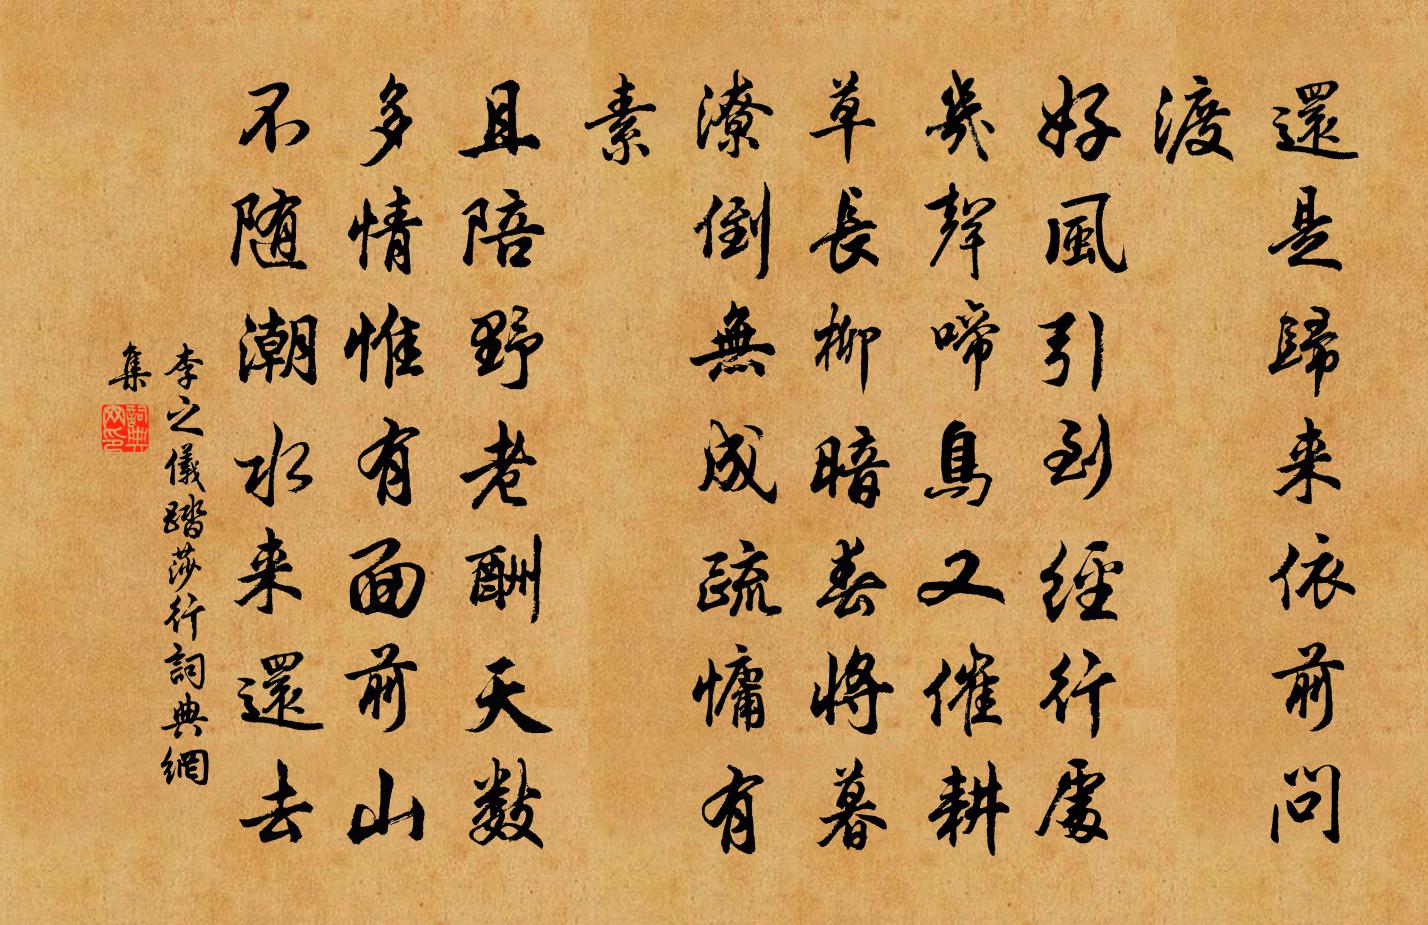 還是歸来依前問
渡
好風引到經行處
幾聲啼鳥又催耕
草長柳暗春將暮
潦倒無成疏慵有
素
且陪野老酬天數
多情惟有面前山
不随潮水来還去
李之儀踏莎行詞典網
集
詞典网印